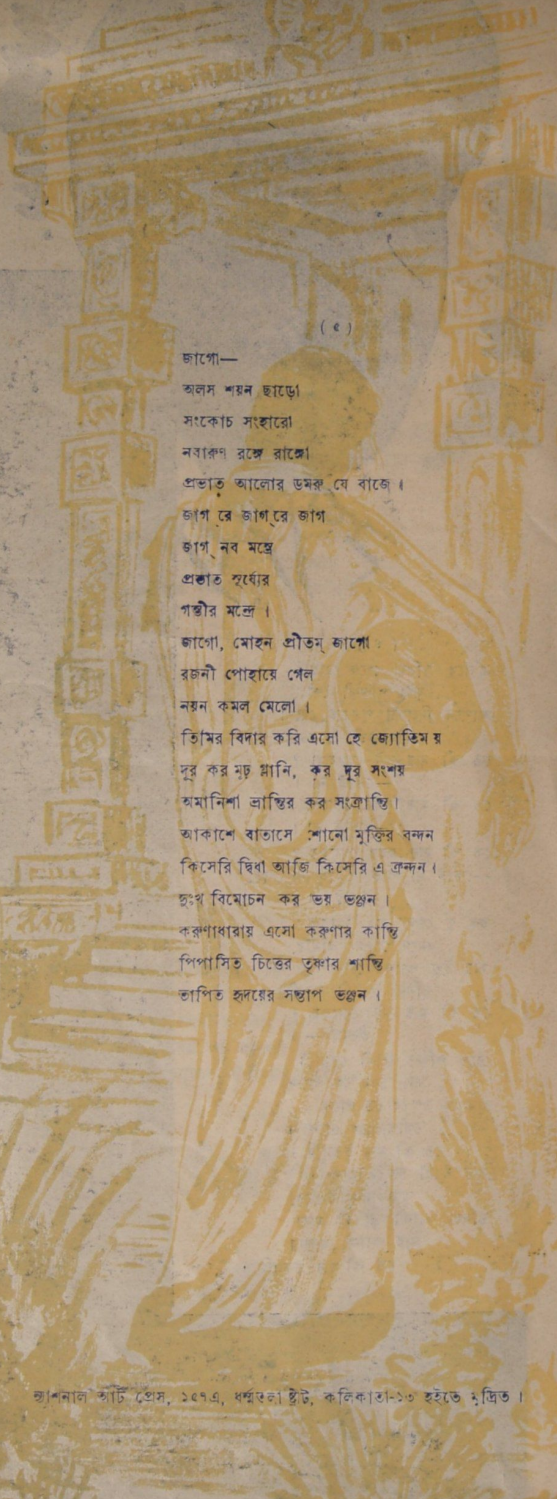 ( ৫ )
জাগো—
অলস শয়ন ছাড়ো
সংকোচ সংহারো
নবারুণ রঙ্গে রাঙ্গো
প্রভাত আলোর ডমরু যে বাজে ।
জাগ রে জাগ্‌রে জাগ
জাগ্ নব মন্ত্রে
প্রভাত সূর্য্যের
গম্ভীর মন্দ্রে ।
জাগো, মোহন প্রীতম্ জাগো
রজনী পোহায়ে গেল
নয়ন কমল মেলো ।
তিমির বিদার করি এসো হে জ্যোতিময়
দূর কর মূঢ় গ্লানি, কর দূর সংশয়
অমানিশা ভ্রান্তির কর সংক্রান্তি ।
আকাশে বাতাসে শোনো মুক্তির বন্দন
কিসেরি দ্বিধা আজি কিসেরি এ ক্রন্দন ।
দুঃখ বিমোচন কর ভয় ভঞ্জন ।
করুণাধারায় এসো করুণার কান্তি
পিপাসিত চিত্তের তৃষ্ণার শান্তি
তাপিত হৃদয়ের সন্তাপ ভঞ্জন ।
ন্যাশনাল আর্ট প্রেস, ১৫৭এ, ধর্ম্মতলা ষ্ট্রীট, কলিকাতা-১৩ হইতে মুদ্রিত ।